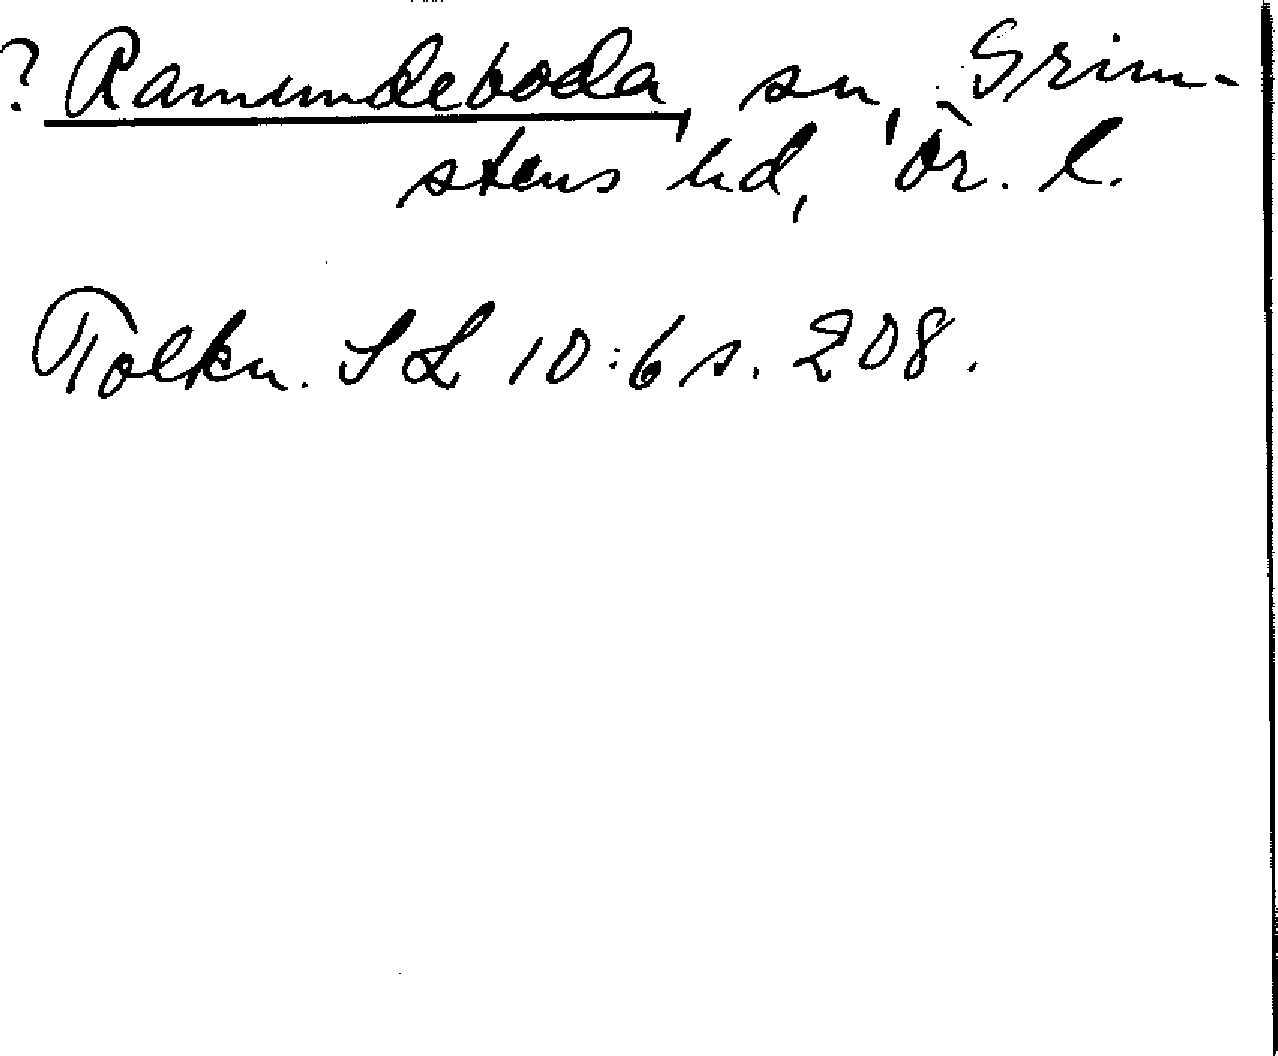 ? Ramundeboda, sn, Grim-
stens hd, Ör. l.
Tolkn. SL 10:6 s. 208.